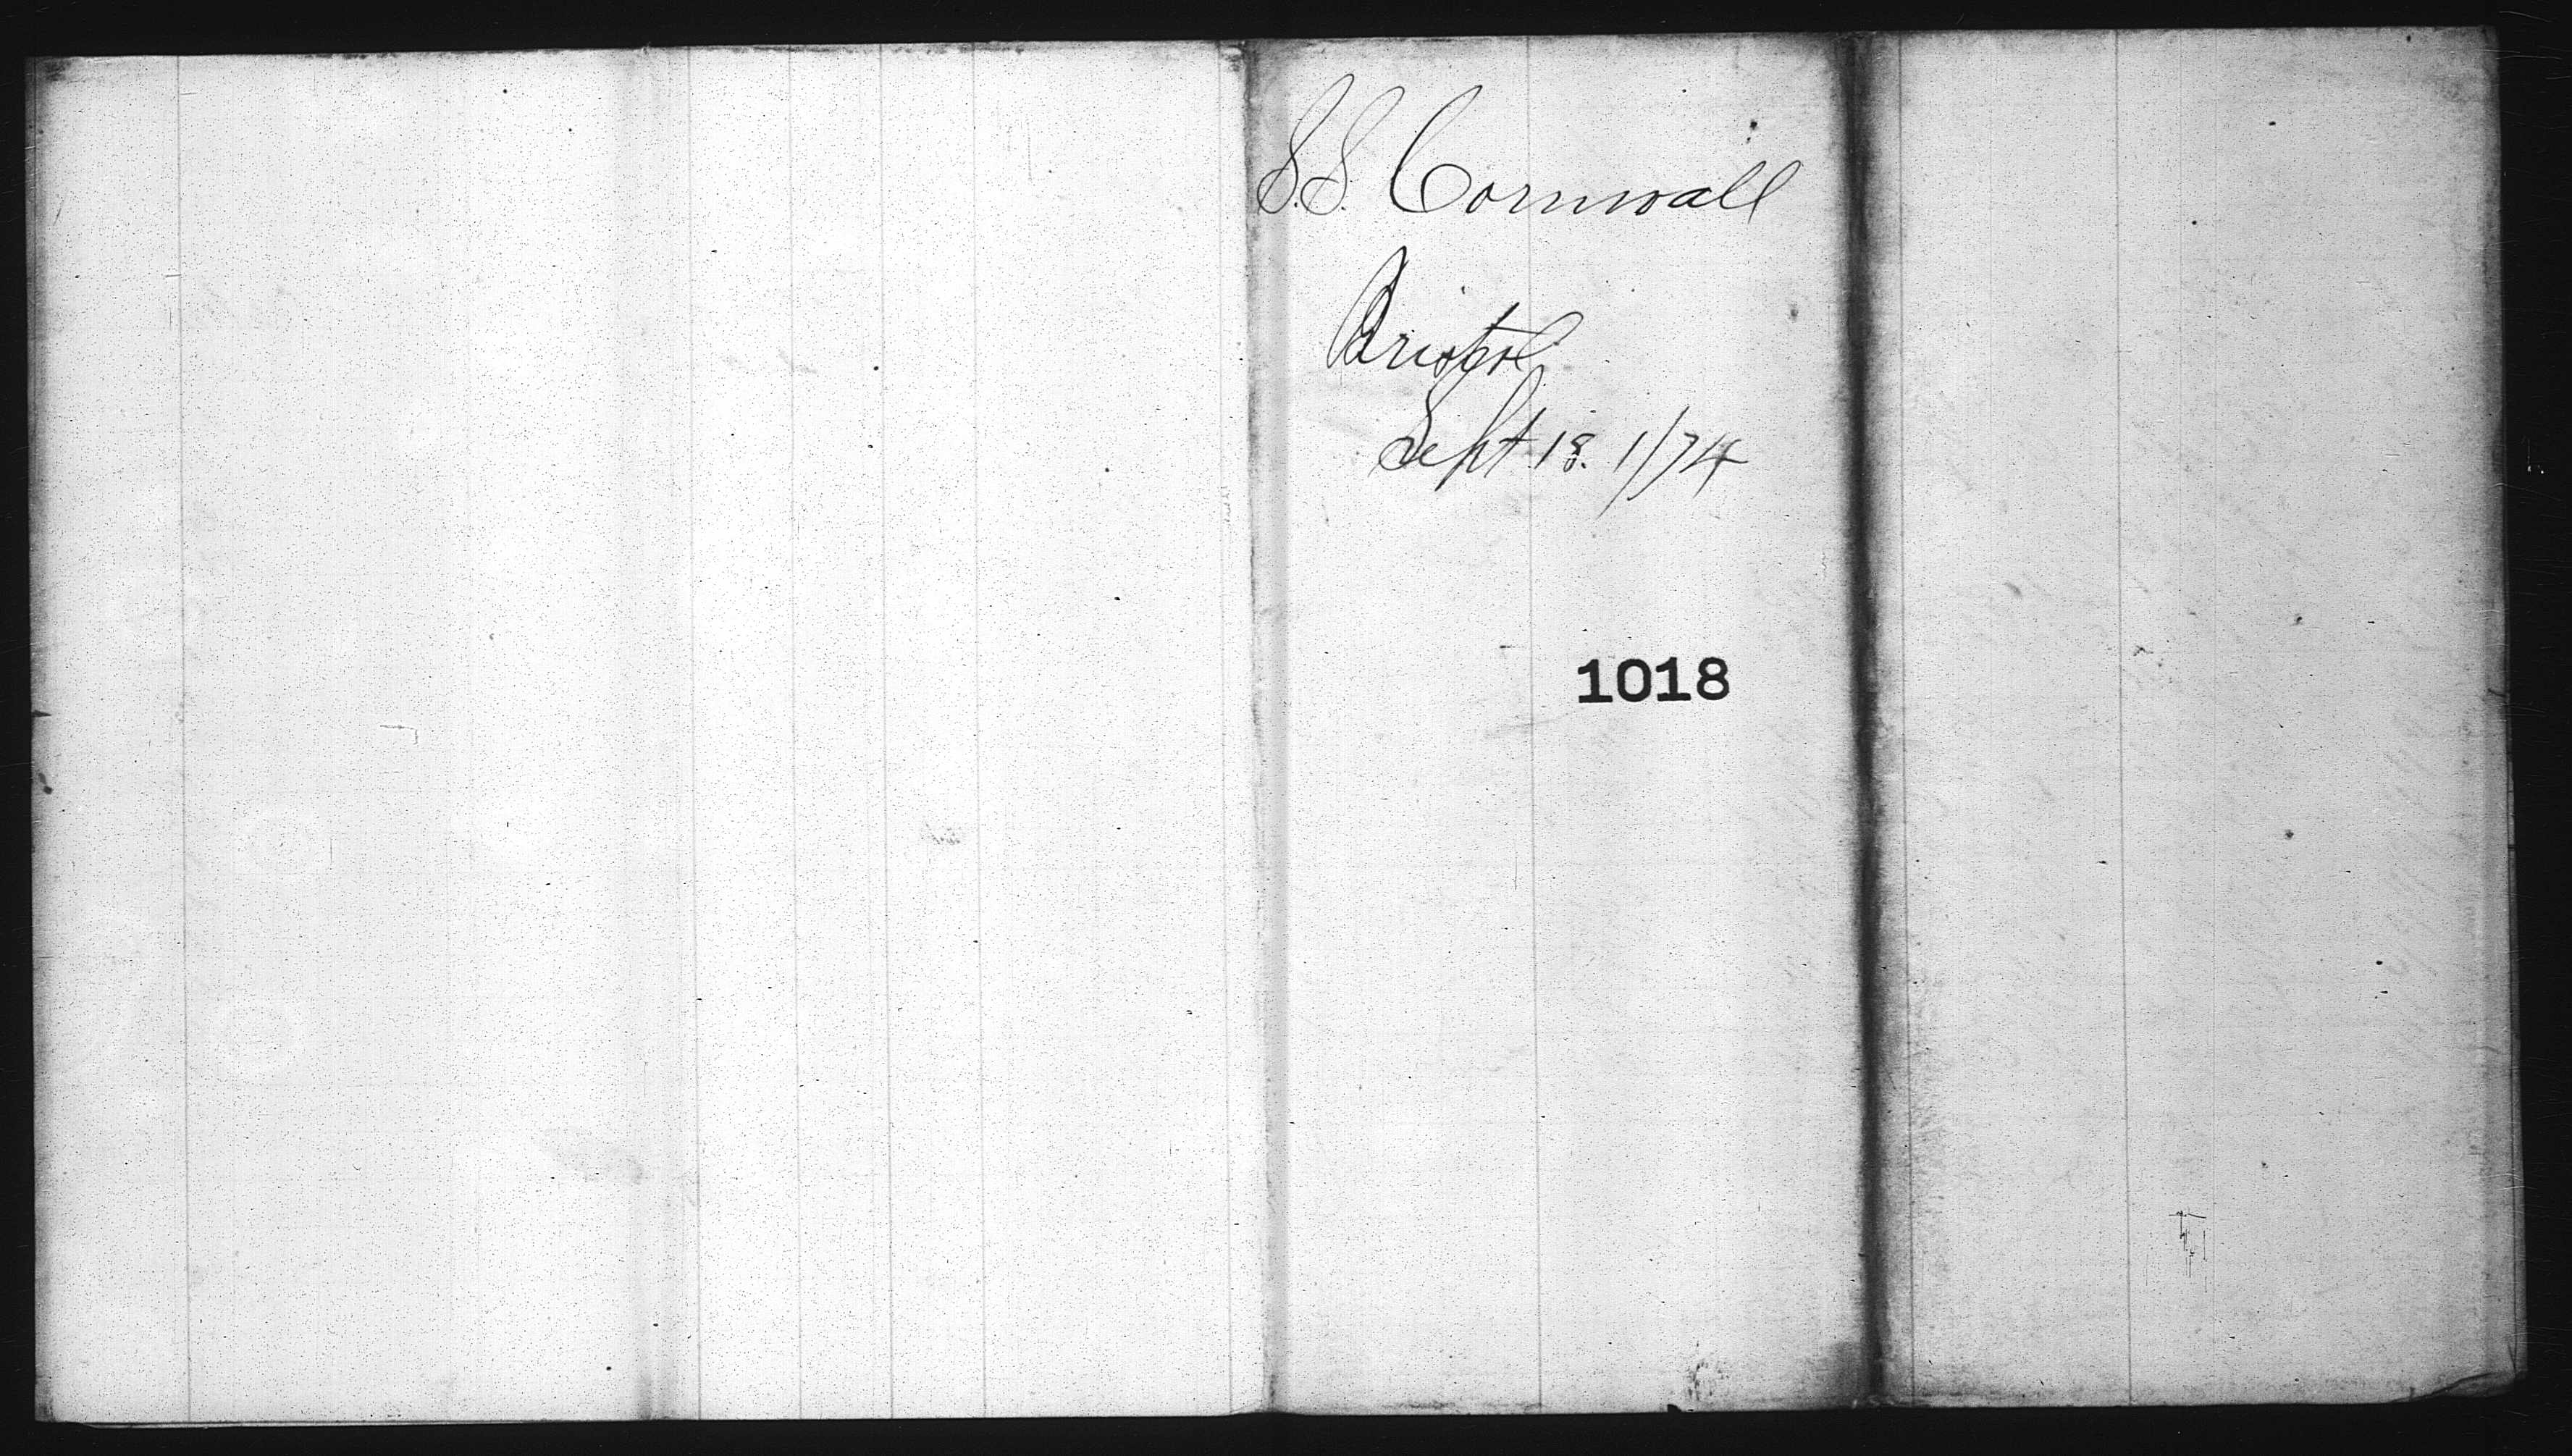 S.S. Cornwall
Bristol
Sept. 18. 1/74
1018